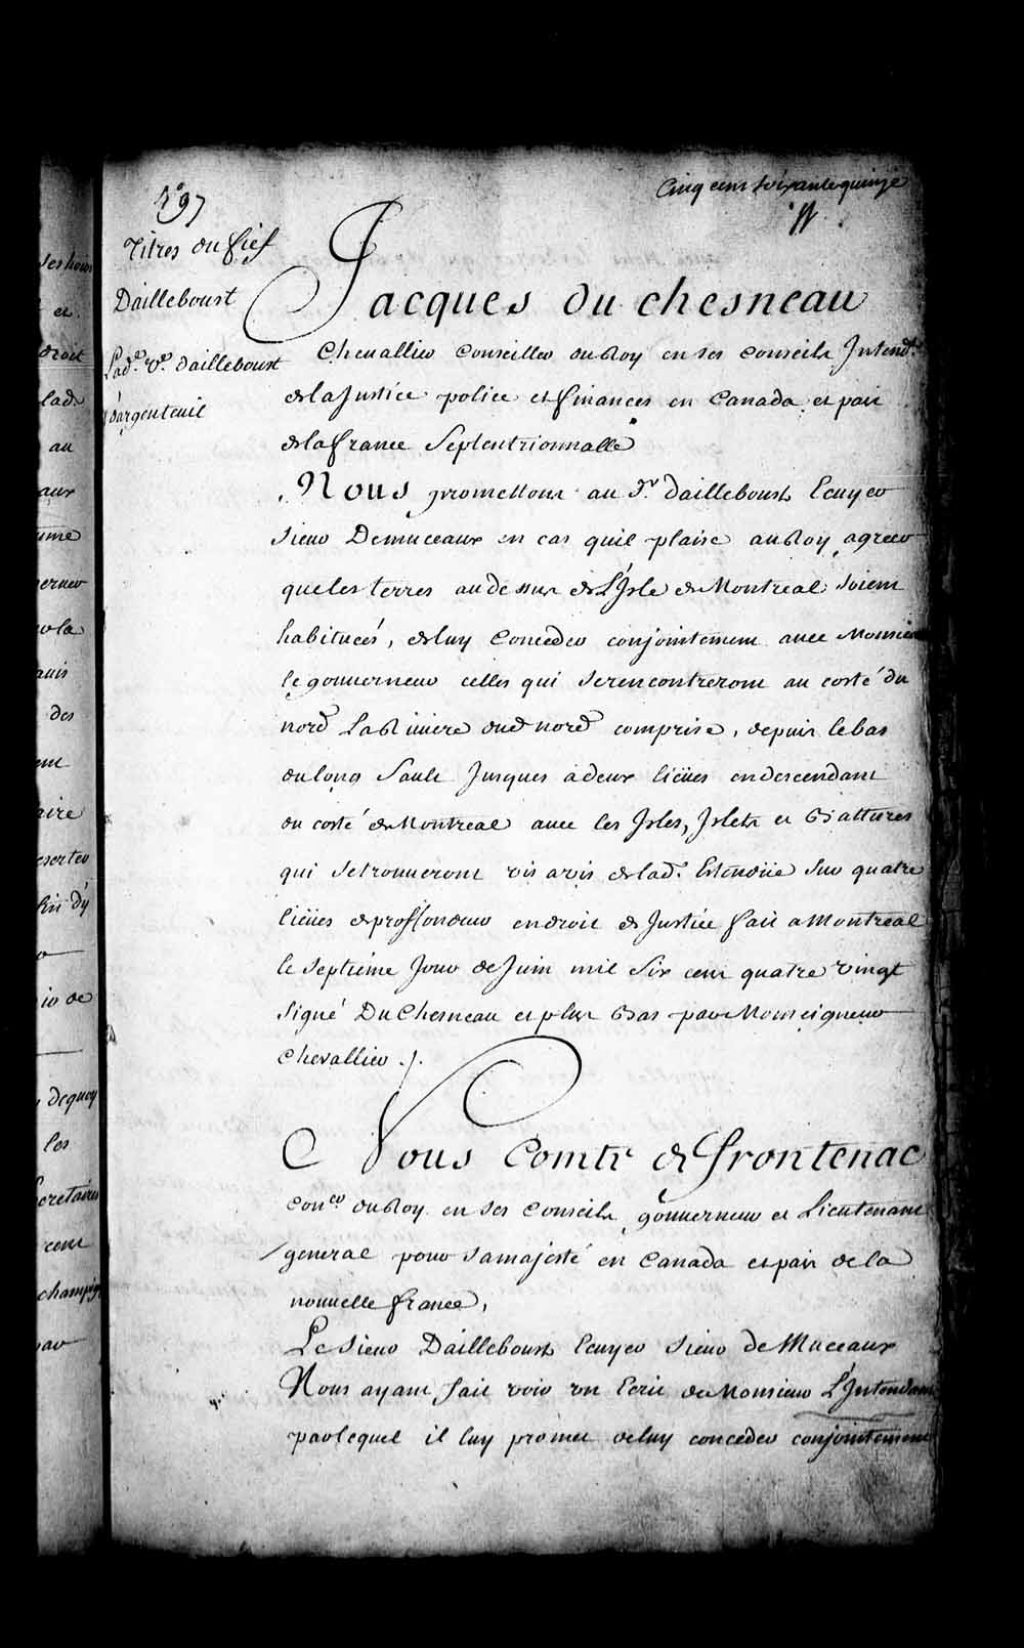 Cinq cent soixante quinze
N.° 97
Titres du fief
Dailleboust
Lad.e v.e dailleboust
dargenteuil
Jacques du chesneau
Chevallier Conseiller du Roy en ses Conseils Intend.t
de la Justice police et finances en Canada et païs
de la france Septentrionnalle
Nous promettons au S.r dailleboust Ecuyer
sieur Demuceaux en cas quil plaise au Roy agreer
que les terres au dessus de L'Isle de Montreal soient
habituées, de luy Conceder conjointement avec Monsieur
le gouverneur celles qui se rencontreront au costé du
nord La Riviere du nord comprise, depuis le bas
du long Sault Jusques a deux liëues en descendant
du costé de Montreal avec les Isles, Islets et Battures
qui se trouveront vis avis de lad. Estendüe sur quatre
liëues de proffondeur en droit de Justice fait a Montreal
le septiéme Jour de Juin mil Six cent quatre vingt
signé Du Chesneau et plus Bas par Monseigneur
Chevallier ./.
Nous Comte de frontenac
Con.er du Roy en ses Conseils, gouverneur et Lieutenant
general pour sa majesté en Canada et païs de la
nouvelle france,
Le sieur Dailleboust Ecuyer sieur de Muceaux
Nous ayant fait voir un Ecrit de Monsieur L'Intendant
par lequel il luy promet de luy conceder conjointement
ses hoirs
et
droit
lad.
au
aux
verneur
de la
avis
des
aire
fin d'y
de
dequoy
les
Secretaire
cent
champig
par